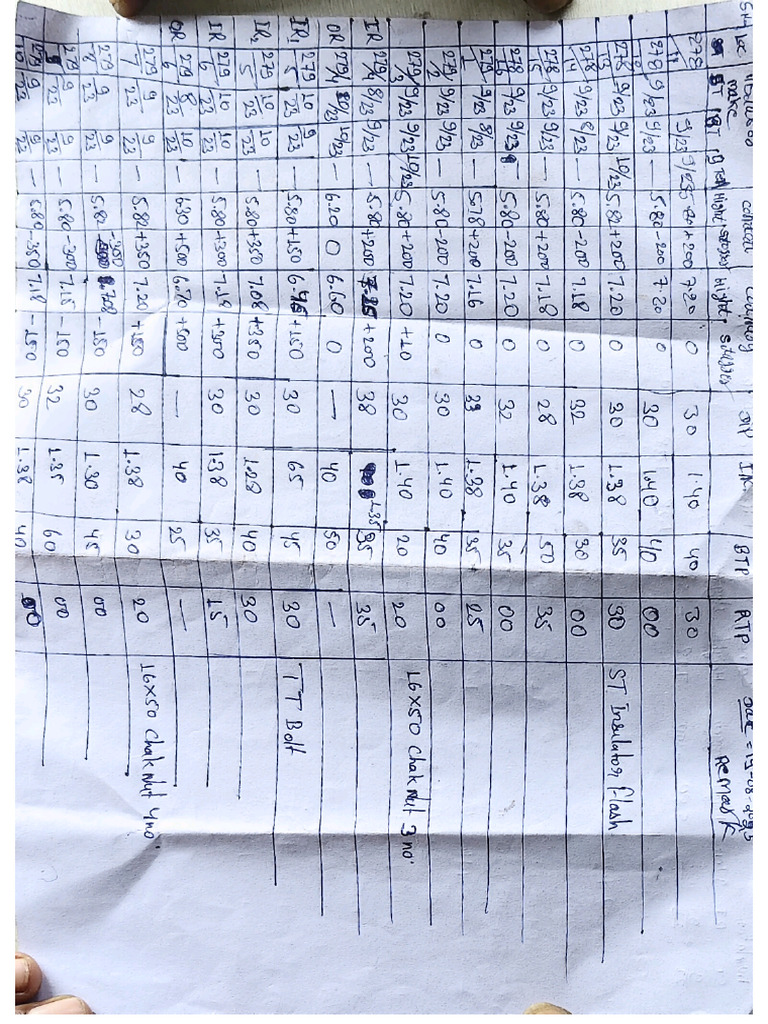 make
ST BT 9 Tra Hight Stagger Hight Stagger JP IN. BTP RTP Remark
278 9/23 9/23 5.80 +200 7.20 0 30 1.40 40 30
278 9/23 9/23 — 5.80 -200 7.20 0 30 1.40 40 00
278/13 9/23 9/23 10/23 5.82 +200 7.20 0 30 1.38 35 30 ST Insulator flash
278/14 9/23 8/23 — 5.80 -200 7.18 0 32 1.38 30 00
278/15 9/23 9/23 — 5.80 +200 7.18 0 28 1.38 50 35
278/16 9/23 9/23 — 5.80 -200 7.20 0 32 1.40 35 00
279/1 9/23 8/23 — 5.78 +200 7.16 0 33 1.38 35 25
279/2 9/23 9/23 — 5.80 -200 7.20 0 30 1.40 40 00
279/3 9/23 9/23 10/23 5.80 +200 7.20 +10 30 1.40 20 20 16x50 Chak Nut 3 no.
IR 279/4 8/23 9/23 — 5.80 +200 +200 38 1.35 35 35
OR 279/4 10/23 10/23 — 6.20 0 6.60 0 — 40 50 —
IR1 279/5 10/23 9/23 — 5.80 +150 6.45 +150 30 65 45 30 TT Bolt
IR2 279/5 10/23 10/23 — 5.80 +350 7.08 +350 30 1.28 40 30
IR 279/6 10/23 10/23 — 5.80 +300 7.19 +300 30 1.38 35 15
OR 279/6 8/23 10/23 — 6.30 +500 6.70 +500 — 40 25 —
279/7 9/23 9/23 — 5.82 +350 7.20 +150 28 1.38 30 20 16x50 Chak Nut 4 no.
279/8 9/23 9/23 — 5.82 -350 -150 30 1.30 45 00
279/9 9/23 9/23 — 5.80 -300 7.15 -150 32 1.35 60 00
279/10 9/23 9/23 — 5.80 -350 7.18 -150 30 1.38 40